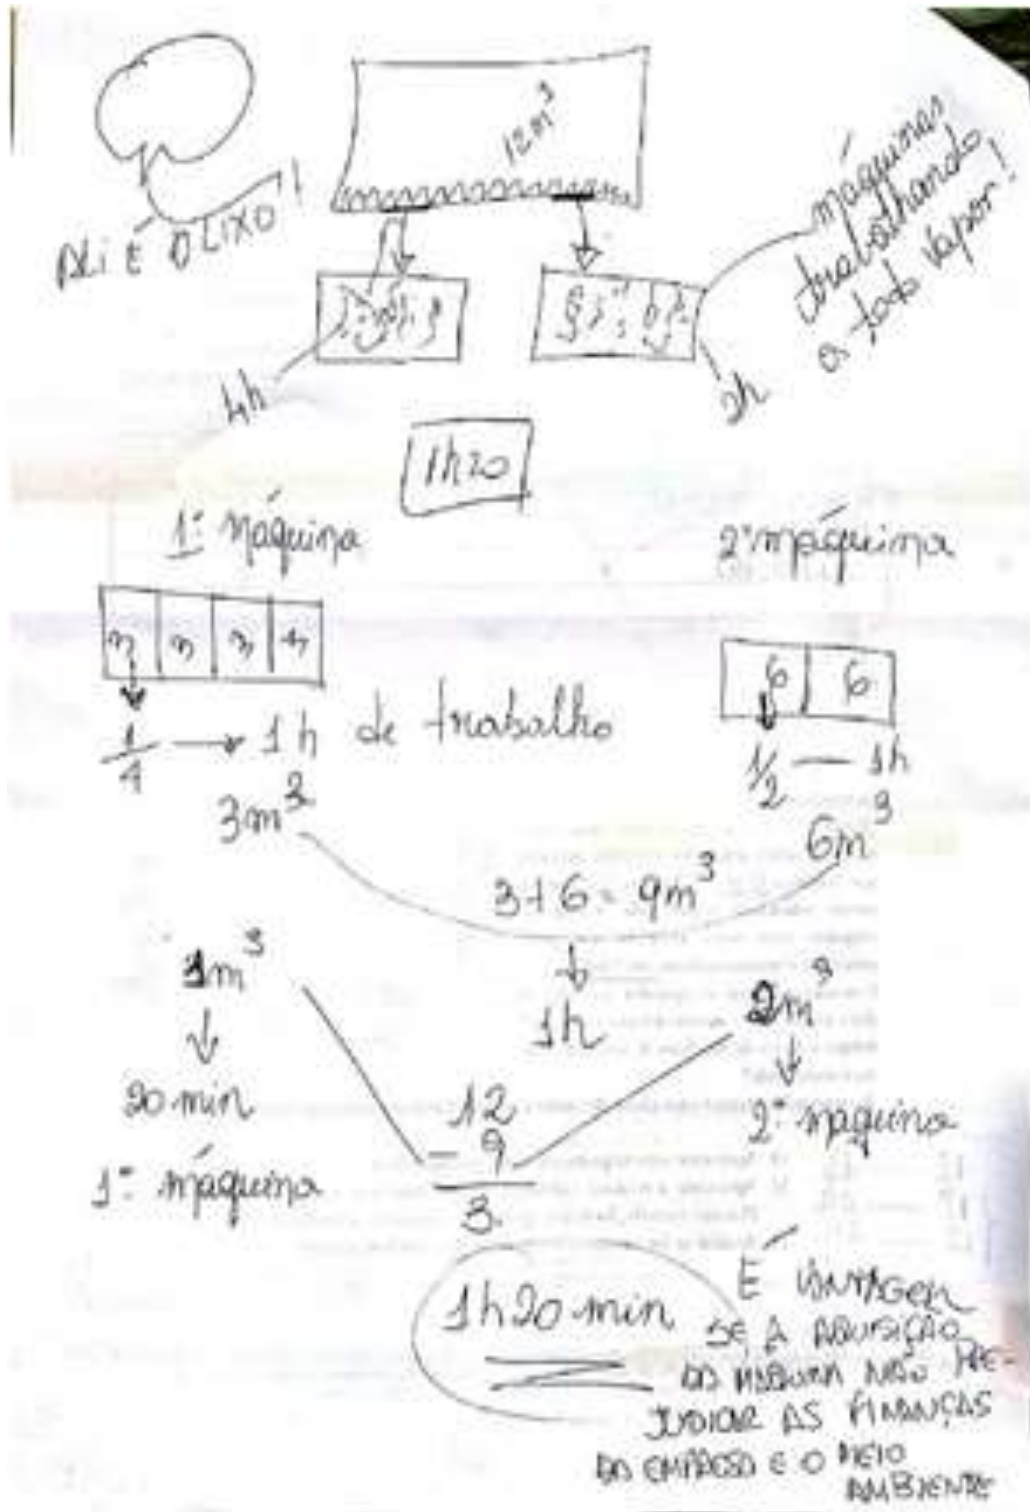 12m³
ALI É O LIXO!
máquinas
trabalhando
a todo vapor!
4h
2h
1h20
1ª máquina
2ª máquina
3 3 3 3
6 6
1/4 → 1h de trabalho
1/2 — 1h
3m³
6m³
3+6 = 9m³
1m³
1h
2m³
20 min
2ª máquina
1ª máquina
12
- 9
3
1h20 min
É VANTAGEM
SE A AQUISIÇÃO
DA MÁQUINA NÃO PRE-
JUDICAR AS FINANÇAS
DA EMPRESA E O MEIO
AMBIENTE